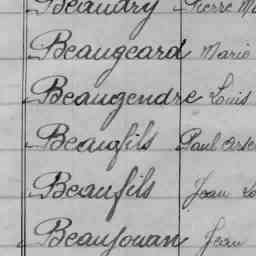 Beaudry Pierre
Beaugeard Marie
Beaugendre Louis
Beaugfils Paul
Beaufils Jean
Beaujouan Jean